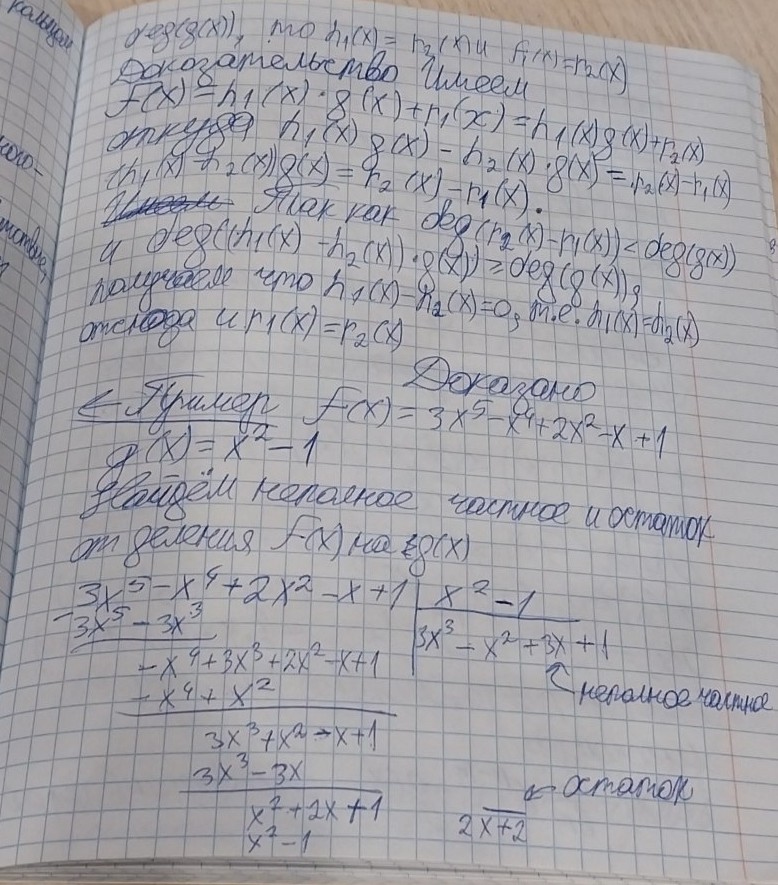 кольцом
ного-
deg(g(x)), то h₁(x) = r₂(x) и f₁(x)=r₂(x)
Доказательство Имеем
f(x) = h₁(x)·g(x)+r₁(x) = h₁(x)g(x)+r₂(x)
откуда h₁(x)g(x) - h₂(x)·g(x) = r₂(x)-r₁(x)
(h₁(x)-h₂(x))g(x) = r₂(x) - r₁(x).
Так как deg(r₂(x)-r₁(x)) < deg(g(x))
и deg((h₁(x)-h₂(x))·g(x)) ≥ deg(g(x)),
получаем что h₁(x)-h₂(x)=0, т.е. h₁(x)=h₂(x)
отсюда и r₁(x)=r₂(x)
Доказано
← Пример f(x) = 3x⁵-x⁴+2x²-x+1
g(x) = x²-1
Найдём неполное частное и остаток
от деления f(x) на g(x)
3x⁵-x⁴+2x²-x+1 | x²-1
- 3x⁵-3x³ 3x³-x²+3x+1
-x⁴+3x³+2x²-x+1 неполное частное
-x⁴+x²
3x³+x²-x+1
3x³-3x остаток
x²+2x+1 2x+2
x²-1